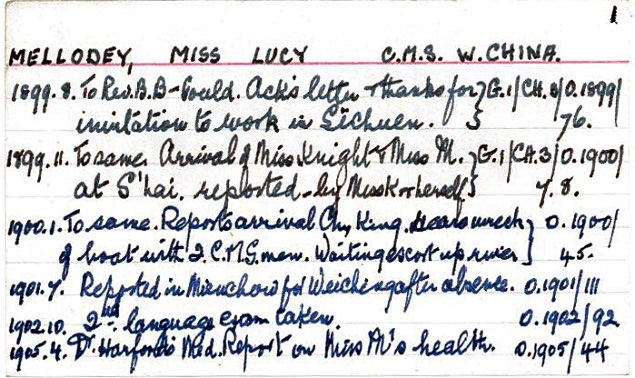 1
MELLODEY, MISS LUCY C.M.S. W. CHINA.
1899.8. To Rev. B.B-Gould. Ack's letter thanks for } G.1/CH.3/O.1899/
invitation to work in Sichuen. } 76.
1899.11. To same. Arrival of Miss Knight & Miss M. } G.1/CH.3/O.1900/
at S'hai. reported - by Miss K & herself } 7.8.
1900.1. To same. Reports arrival Chung King. Hears wreck } O.1900/
of boat with 2. C.M.S. men. Waiting escort up river } 45.
1901.7. Reported in Mienchow for Weiching after absence. O.1901/111
1902.10. 2nd. language exam taken. O.1902/92
1905.4. Dr. Harford's Med. Report on Miss M's health. O.1905/44